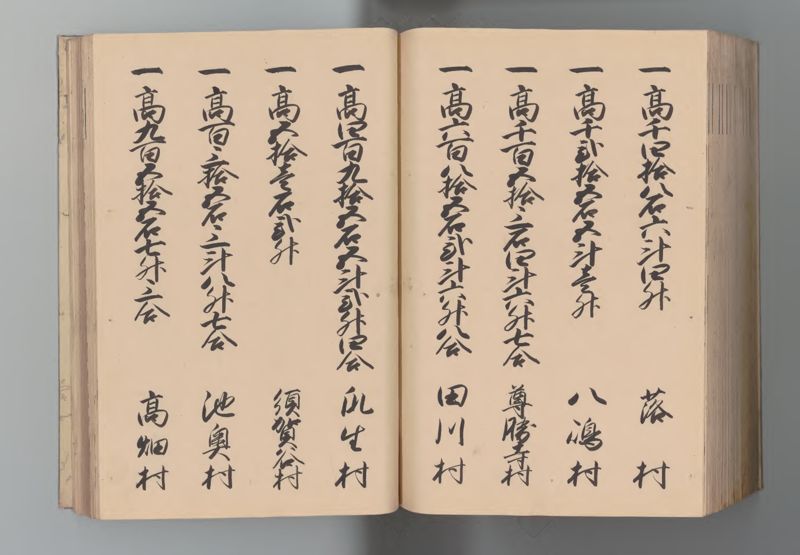 一 高千四拾八石六斗四升 落村
一 高千弐拾五石五斗壱升 八嶋村
一 高千百五拾三石四斗六升七合 尊勝寺村
一 高六百八拾五石弐斗六升八合 田川村
一 高四百九拾五石五斗弐升四合 瓜生村
一 高五拾壱石弐升 須賀谷村
一 高百三拾五石三斗八升七合 池奥村
一 高九百五拾五石七升三合 高畑村